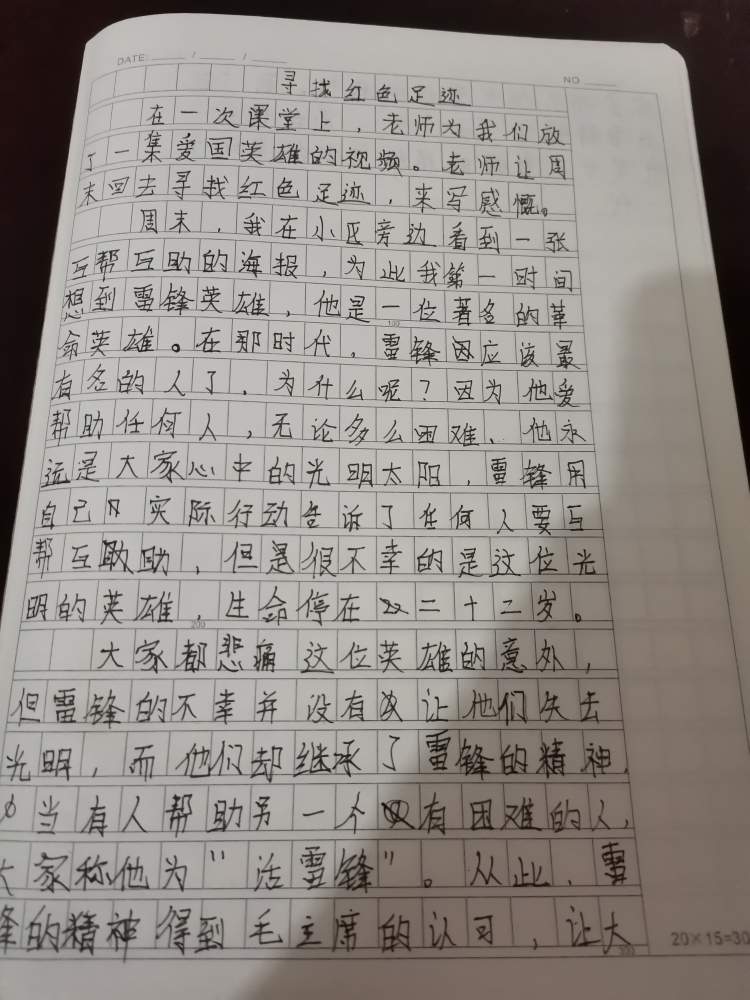 DATE: ____ / ____ / ____
NO ____
寻找红色足迹
在一次课堂上，老师为我们放
了一集爱国英雄的视频。老师让周
末回去寻找红色足迹，来写感慨。
周末，我在小区旁边看到一张
互帮互助的海报，为此我第一时间
想到雷锋英雄，他是一位著名的革
命英雄。在那时代，雷锋因应该最
有名的人了，为什么呢？因为他爱
帮助任何人，无论多么困难、他永
远是大家心中的光明太阳，雷锋用
自己 实际行动告诉了任何人要互
帮互助，但是很不幸的是这位光
明的英雄，生命停在二十二岁。
大家都悲痛这位英雄的意外，
但雷锋的不幸并没有让他们失去
光明，而他们却继承了雷锋的精神，
当有人帮助另一个有困难的人，
大家称他为“活雷锋”。从此，雷
锋的精神得到毛主席的认可，让大
100
200
300
20×15=30